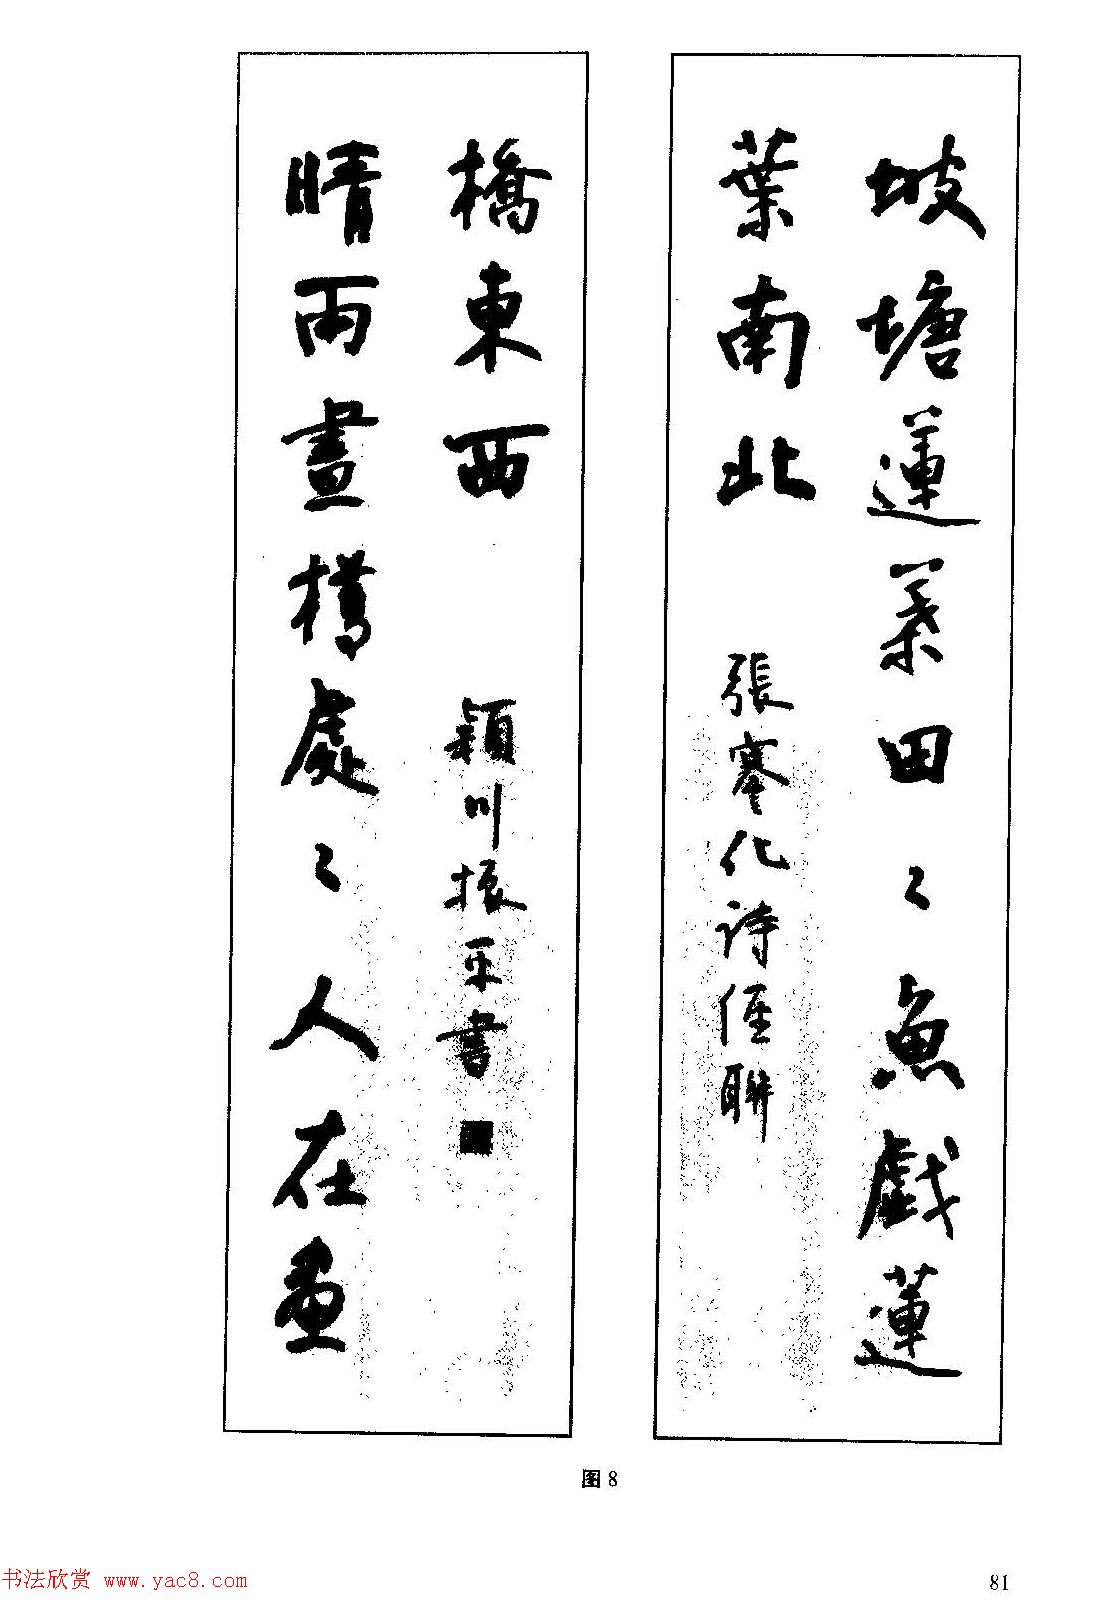 坡塘蓮葉田〻魚戲蓮
葉南北
張謇化詩經聯
晴雨畫橋處〻人在畫
橋東西
穎川振平書
图8
书法欣赏 www.yac8.com
81